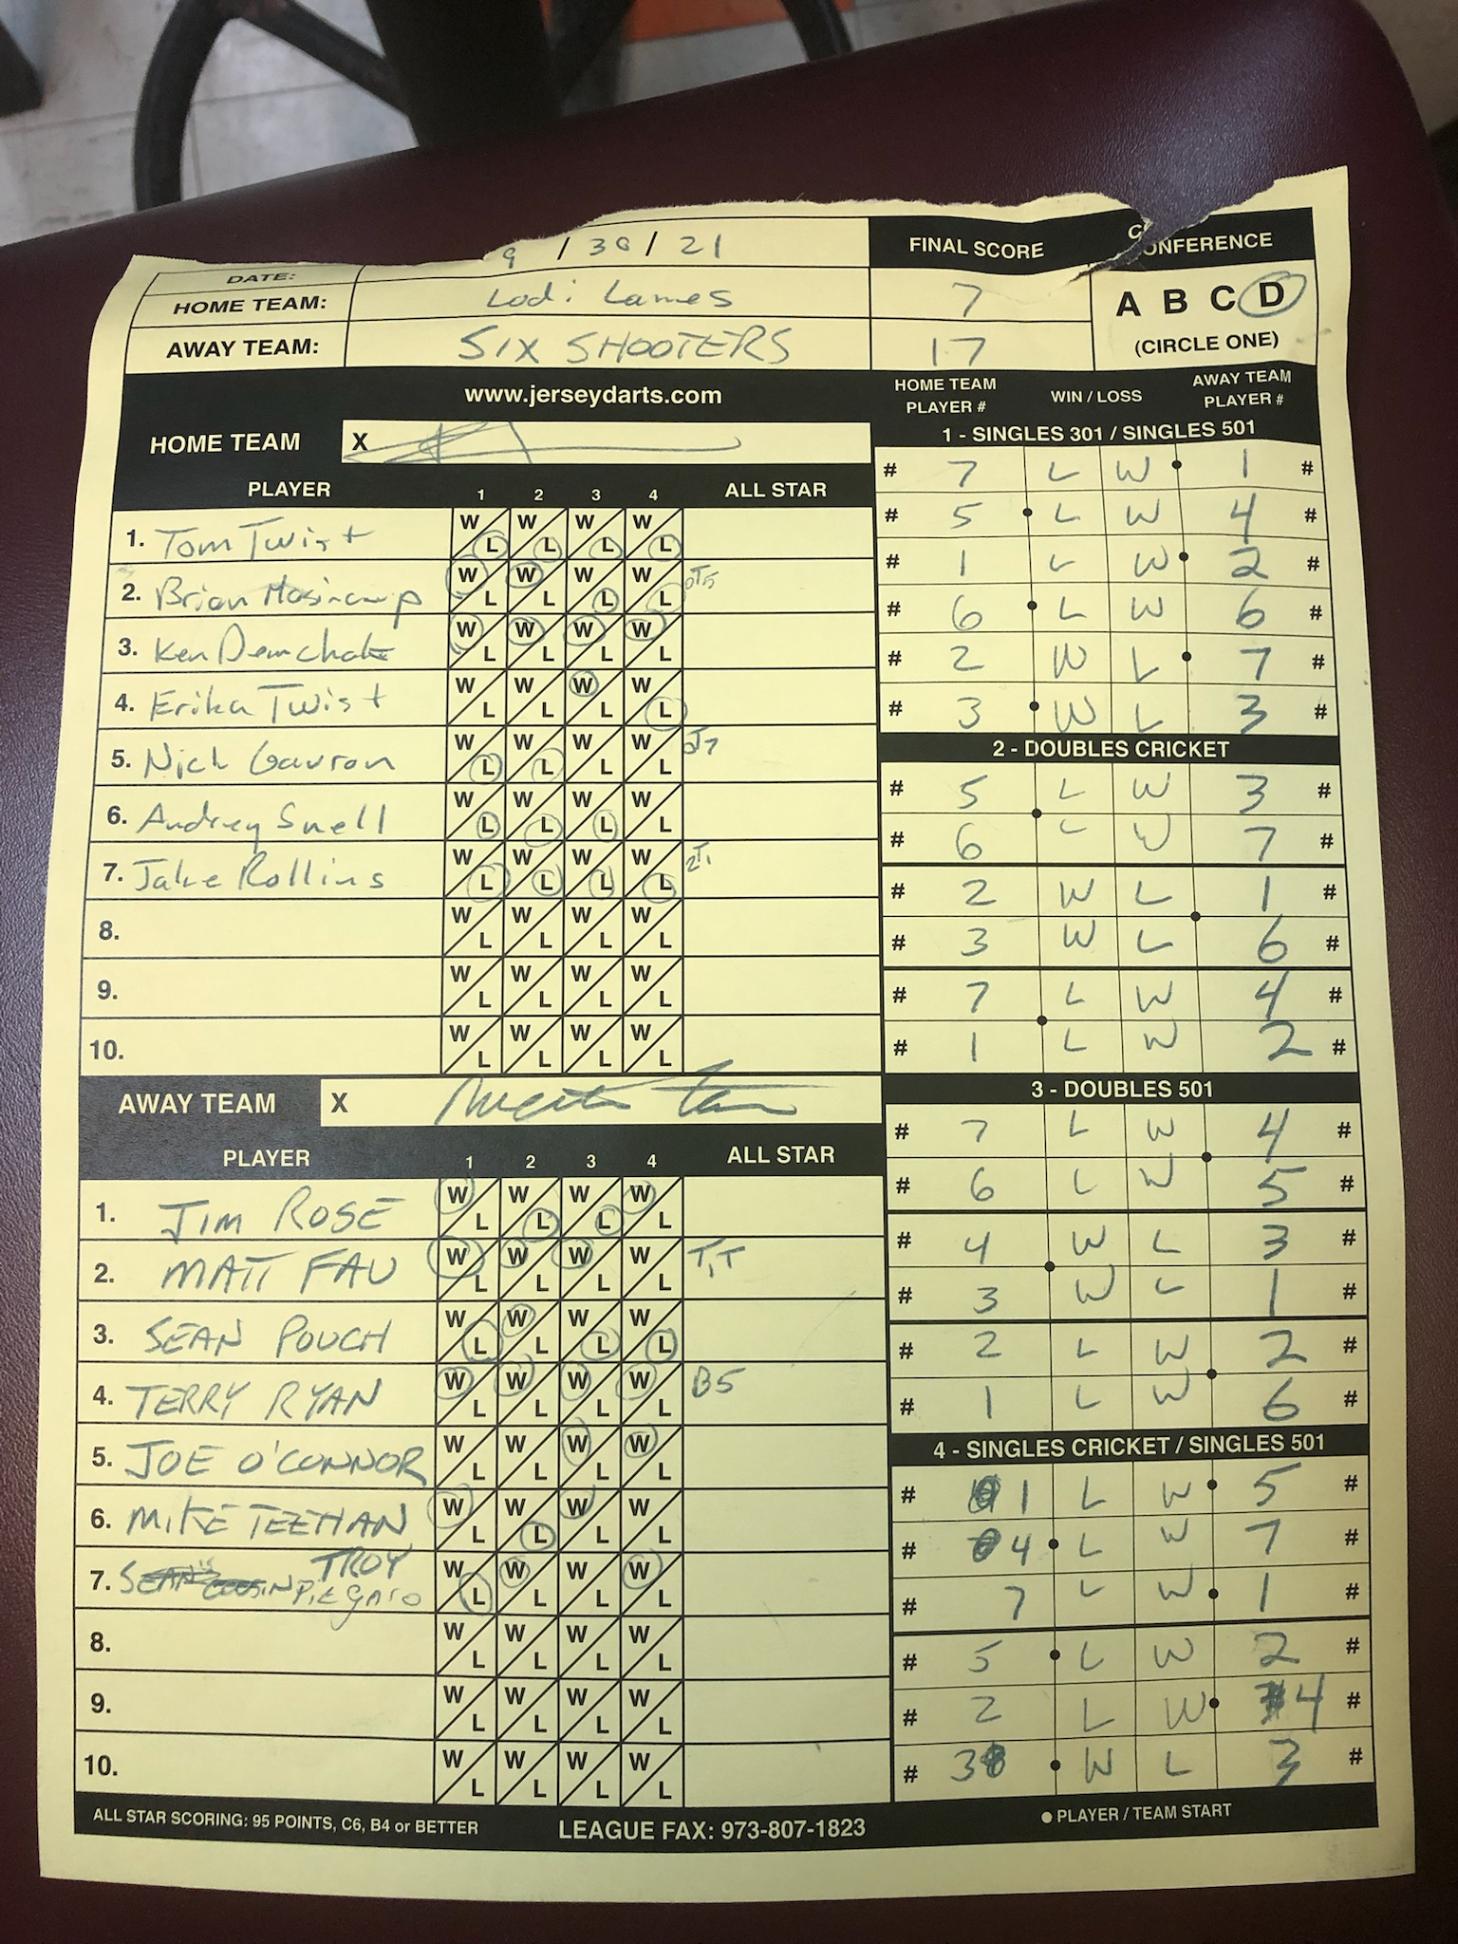 DATE: 9 / 30 / 21
HOME TEAM: Lodi Lames
AWAY TEAM: SIX SHOOTERS
FINAL SCORE
7
17
CONFERENCE
A B C D
(CIRCLE ONE)
www.jerseydarts.com
HOME TEAM X
PLAYER 1 2 3 4 ALL STAR
1. Tom Twist W L W L W L W L
2. Brian W L W L W L W L
3. Ken Demchak W L W L W L W L
4. Erika Twist W L W L W L W L
5. Nick Gavron W L W L W L W L
6. Audrey Snell W L W L W L W L
7. Jake Rollins W L W L W L W L
8. W L W L W L W L
9. W L W L W L W L
10. W L W L W L W L
AWAY TEAM X
PLAYER 1 2 3 4 ALL STAR
1. JIM ROSE W L W L W L W L
2. MATT FAU W L W L W L W L T,T
3. SEAN POUCH W L W L W L W L
4. TERRY RYAN W L W L W L W L B5
5. JOE O'CONNOR W L W L W L W L
6. MIKE TEEHAN W L W L W L W L
7. TROY PIEGARO W L W L W L W L
8. W L W L W L W L
9. W L W L W L W L
10. W L W L W L W L
ALL STAR SCORING: 95 POINTS, C6, B4 or BETTER
LEAGUE FAX: 973-807-1823
HOME TEAM PLAYER # WIN / LOSS AWAY TEAM PLAYER #
1 - SINGLES 301 / SINGLES 501
# 7 L W 1 #
# 5 L W 4 #
# 1 L W 2 #
# 6 L W 6 #
# 2 W L 7 #
# 3 W L 3 #
2 - DOUBLES CRICKET
# 5 L W 3 #
# 6 L W 7 #
# 2 W L 1 #
# 3 W L 6 #
# 7 L W 4 #
# 1 L W 2 #
3 - DOUBLES 501
# 7 L W 4 #
# 6 L W 5 #
# 4 W L 3 #
# 3 W L 1 #
# 2 L W 2 #
# 1 L W 6 #
4 - SINGLES CRICKET / SINGLES 501
# 1 L W 5 #
# 4 L W 7 #
# 7 L W 1 #
# 5 L W 2 #
# 2 L W 4 #
# 3 W L 3 #
PLAYER / TEAM START